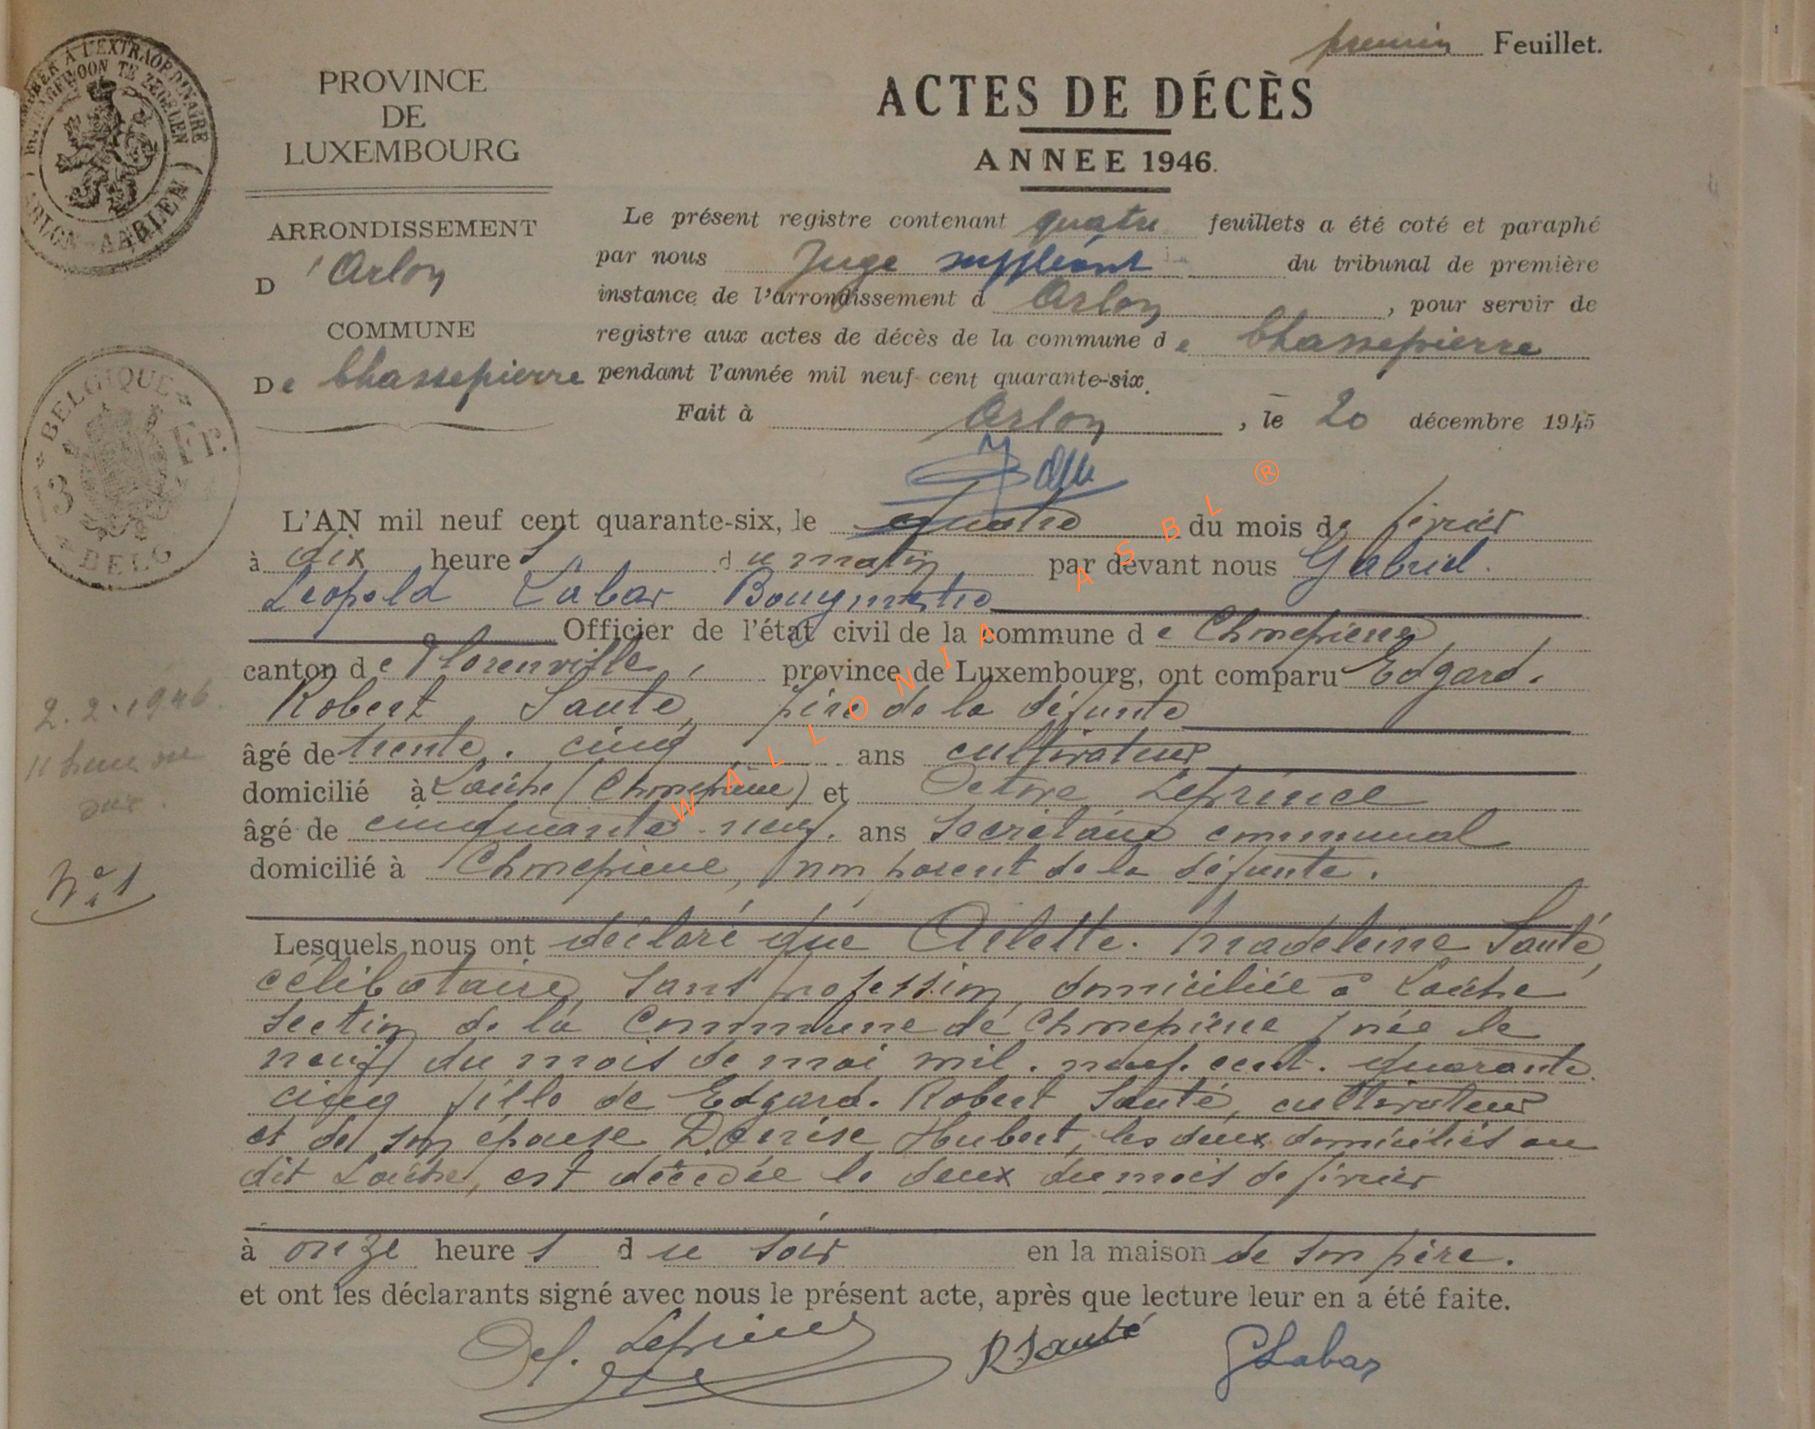 premier Feuillet.
PROVINCE
DE
LUXEMBOURG
ACTES DE DÉCÈS
ANNEE 1946.
ARRONDISSEMENT
D'Arlon
COMMUNE
De Chassepierre
Le présent registre contenant quatre feuillets a été coté et paraphé
par nous Juge suppléant du tribunal de première
instance de l'arrondissement d Arlon, pour servir de
registre aux actes de décès de la commune de Chassepierre
pendant l'année mil neuf cent quarante-six.
Fait à Arlon, le 20 décembre 1945
BELGIQUE
3 Fr.
BELG
ARLON-AARLEN
L'AN mil neuf cent quarante-six, le quatre du mois de février
à dix heures du matin par devant nous Gabriel.
Léopold Labar Bourgmestre
Officier de l'état civil de la commune de Chassepierre,
canton de Florenville, province de Luxembourg, ont comparu Edgard.
Robert Santé, père de la défunte
âgé de trente. cinq ans cultivateur
domicilié à Laiche (Chassepierre) et Octave Leprince
âgé de cinquante. neuf. ans secrétaire communal
domicilié à Chassepierre, non parent de la défunte.
2.2.1946.
11 heures du
soir.
N° 1
Lesquels nous ont déclaré que Arlette. Madeleine Santé,
célibataire, sans profession, domiciliée à Laiche
section de la Commune de Chassepierre, née le
neuf du mois de mai mil. neuf. cent. quarante.
cinq fille de Edgard. Robert Santé, cultivateur
et de son épouse Denise Hubert, les deux domiciliés au
dit Laiche, est décédée le deux du mois de février
à onze heures du soir en la maison de son père.
et ont les déclarants signé avec nous le présent acte, après que lecture leur en a été faite.
Oct. Leprince R Santé G Labar
WALLONIA ASBL ®